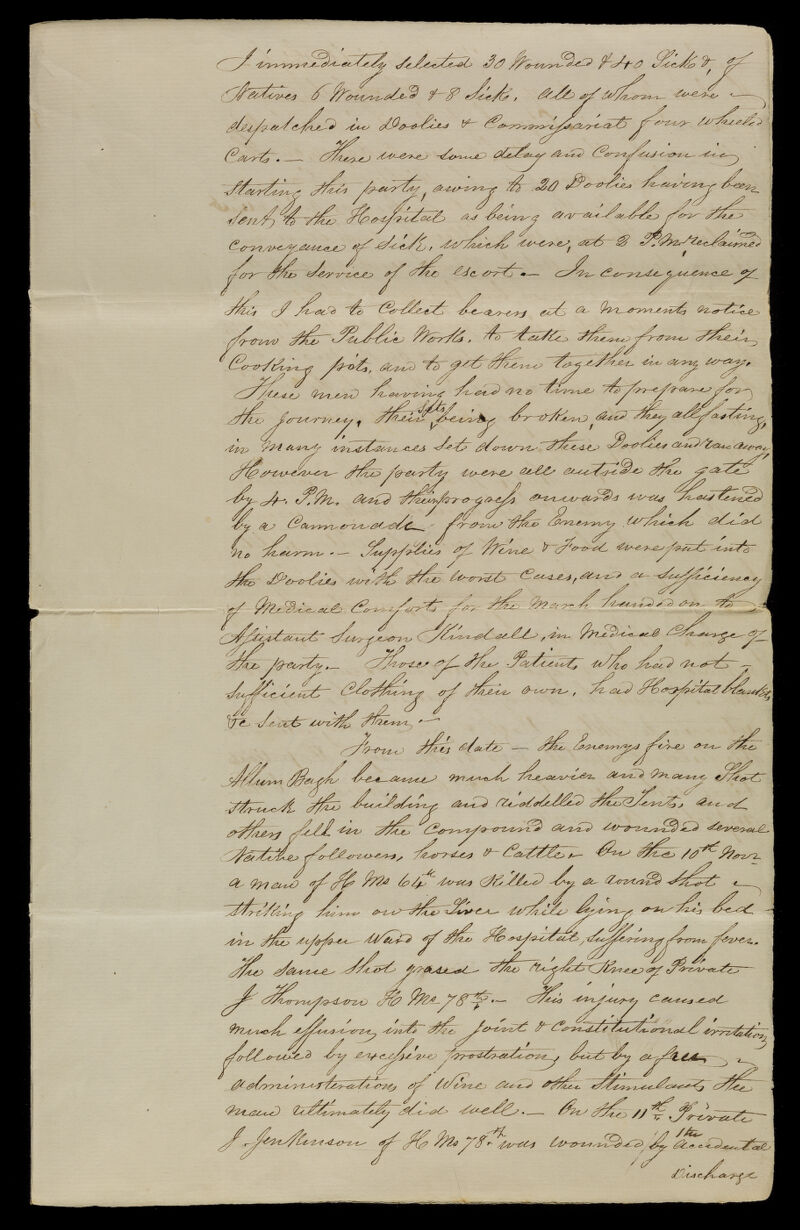 I immediately selected 30 Wounded & 40 Sick &, of
Natives 6 Wounded & 8 Sick. all of whom were –
despatched in Doolies & Commissariat four wheeled
Carts. — There were some delay and confusion in
starting this party, owing to 20 Doolies having been
sent to the Hospital as being available for the
conveyance of sick, which were, at 2 P.M. reclaimed
for the service of the escort. — In consequence of
this I had to collect bearers at a moments notice
from the Public Works, to take them from their
Cooking pots, and to get them together in any way.
These men having had no time to prepare for
the journey, their sets being broken, and they all fasting,
in many instances set down these Doolies and ran away,
However the party were all outside the gate
by 4. P.M. and their progress onwards was hastened
by a Cannonade from the Enemy which did
no harm. — Supplies of Wine & Food were put into
the Doolies with the worst Cases, and a sufficiency
of Medical Comforts for the March handed on to
Assistant Surgeon Kindall, in Medical Charge of
the party. — Those of the Patients who had not –
sufficient Clothing of their own, had Hospital blankets
&c sent with them. —
From this date — the Enemys fire on the
Allum Bagh became much heavier and many Shot
struck the building and riddelled the Tents, and
others fell in the compound and wounded several
Native followers, horses & Cattle. On the 10th Novr
a man of H Ms 64th was killed by a round shot –
striking him on the Liver while lying on his bed –
in the upper Ward of the Hospital, suffering from fever.
The same shot grased the right Knee of Private
J Thompson H Ms 78th. — This injury caused
much effusion into the joint & constitutional irritation,
followed by excessive prostration, but by a free –
administeration of Wine and other Stimulants the
man ultimately did well. — On the 11th Private
J. Jenkenson of H Ms 78th was wounded by the accidental
Discharge